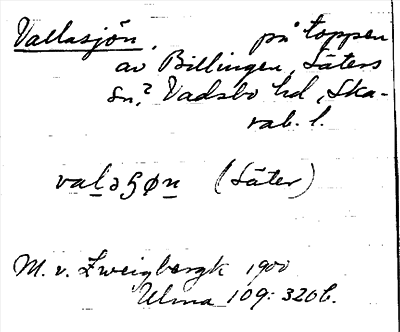 Vallasjön, på toppen
av Billingen, Säters
sn? Vadsbo hd, Ska-
rab. l.
valəʂøn (Säter)
M. v. Zweigbergk 1900
Ulma 109:320b.